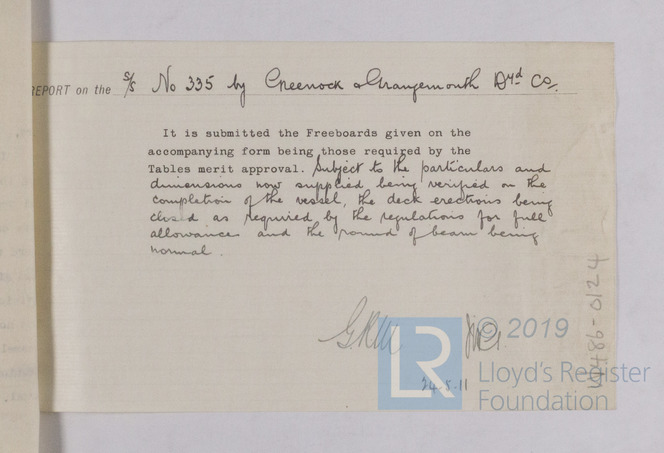 REPORT on the s/s No 335 by Greenock & Grangemouth Dyd Co.
It is submitted the Freeboards given on the
accompanying form being those required by the
Tables merit approval. Subject to the particulars and
dimensions now supplied being verified on the
completion of the vessel, the deck erections being
closed as required by the regulations for full
allowance and the round of beam being
normal.
24.5.11
LR
© 2019
Lloyd's Register
Foundation